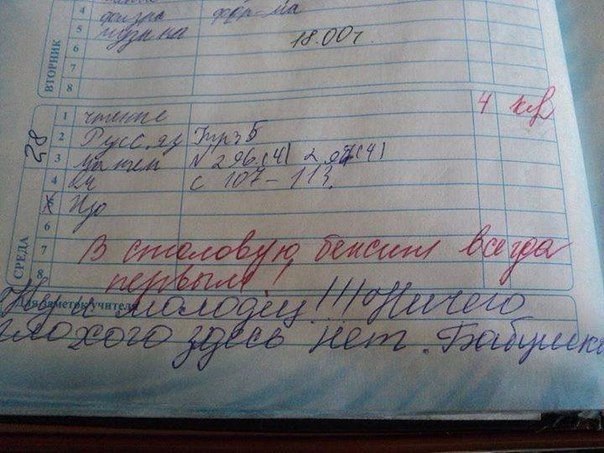 4
физра форма
5
музыка
6
18.00 г.
7
8
ВТОРНИК
1 чтение 4
28
2 Русс. яз Упр 5
3 матем N 296 (4) 297 (4)
4 с 107-113
5 Изо
6
СРЕДА
7 В столовую бежит всегда
8 первым!
Для заметок учителя
Ну и молодец!!! Ничего
плохого здесь нет. Бабушка